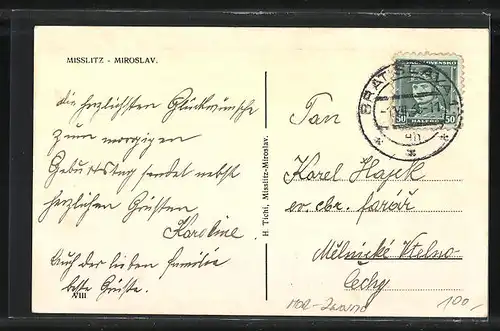 MISSLITZ - MIROSLAV.
die herzlichsten Glückwünsche
zum morgigen
Geburtstag sendet nebst
herzlichen Grüssen
Karoline.
Auch der lieben Familie
beste Grüsse.
VIII
H. Tichi, Misslitz-Miroslav.
ČESKOSLOVENSKO
50 HALÉŘŮ 50
BRATISLAVA
Pan
Karel Hajek
ev. čbr. farář
Mělnické Vtelno
Čechy
100,-